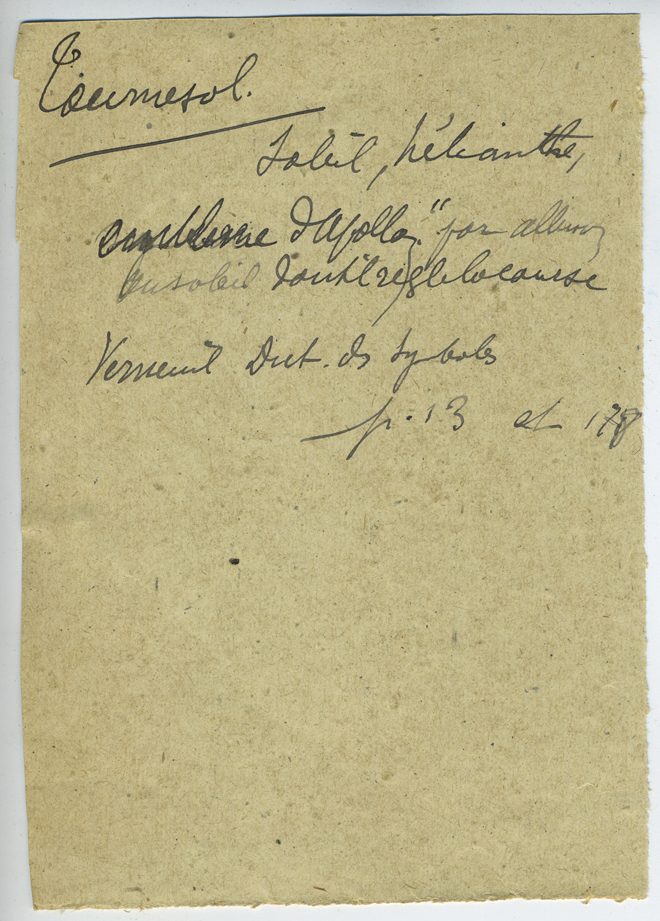 Tournesol.
Soleil, hélianthe,
emblème d'Apollon" par allusion
au soleil dont il règle la course
Verneuil Dict. des Symboles
p. 13 et 178